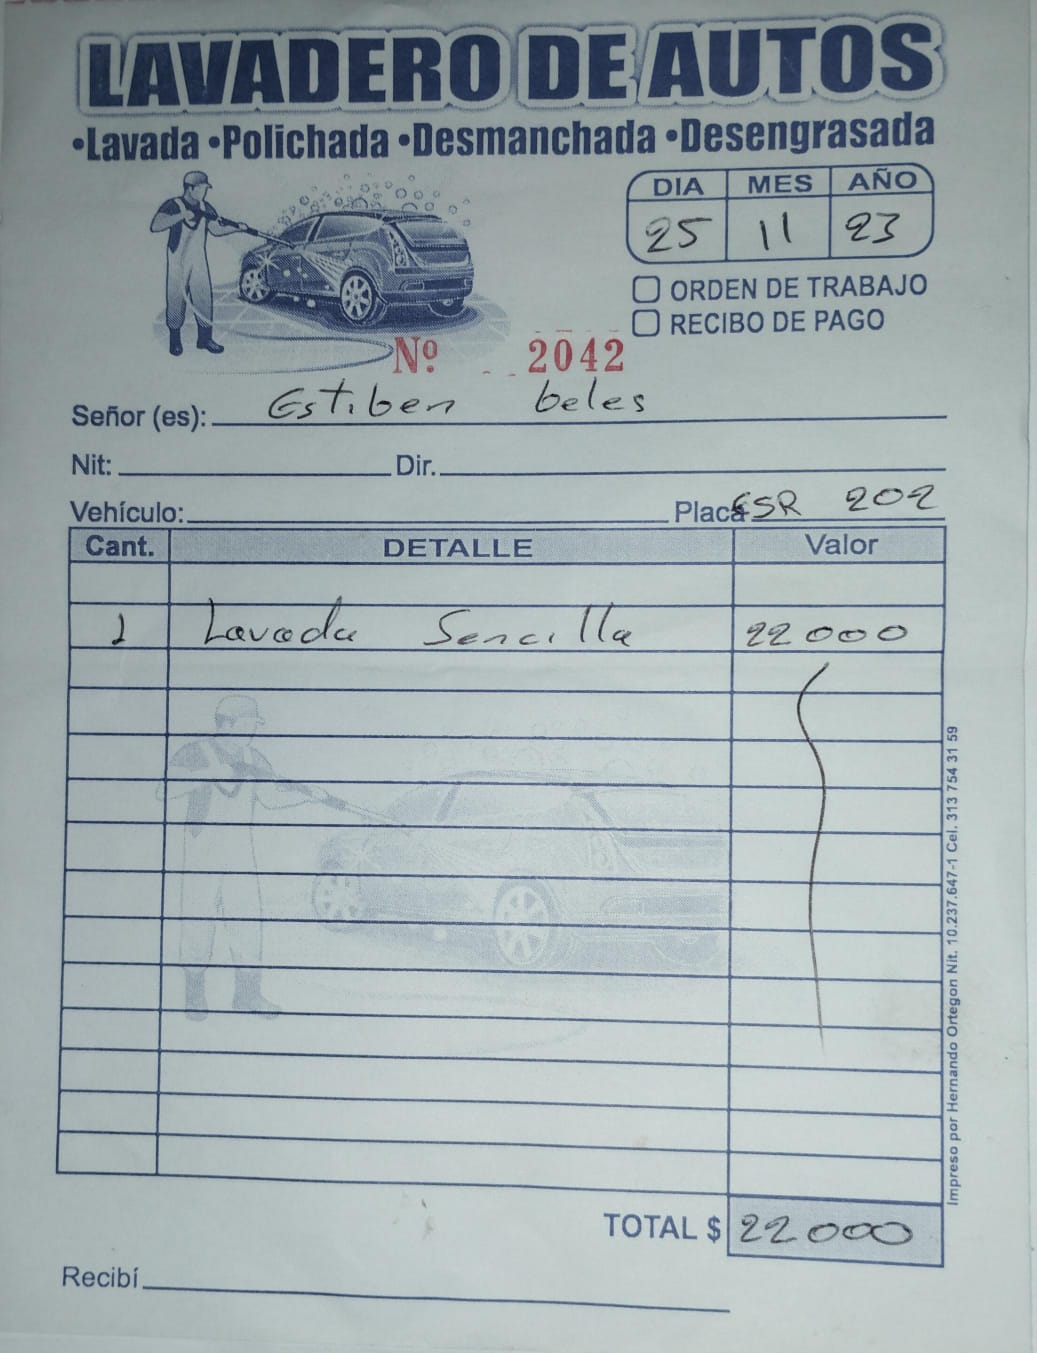 LAVADERO DE AUTOS
•Lavada •Polichada •Desmanchada •Desengrasada
DIA MES AÑO
25 11 23
ORDEN DE TRABAJO
RECIBO DE PAGO
Nº 2042
Señor (es): Estiben beles
Nit: Dir.
Vehículo: Placa ESR 202
Cant. DETALLE Valor
1 Lavada Sencilla 22000
TOTAL $ 22000
Recibí
Impreso por Hernando Ortegon Nit. 10.237.647-1 Cel. 313 754 31 59